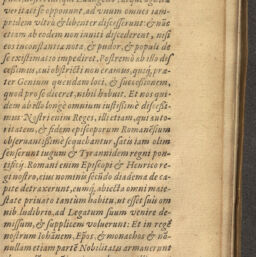 veritati se opponunt, ad unum omnes iam-
pridem ultrò & libenter discesserunt: & nũc
etiam ab eodem non inviti discederent, nisi
eos inconstantiæ nota, & pudor, & populi de
se existimatio impediret. Postremò ab illo dis
cessimus, cui obstricti non eramus, quiq́; præ-
ter Genium quendam loci, & successionem,
quod pro se diceret, nihil habuit. Et nos qui-
dem ab illo longè omnium iustissimè discessi-
mus. Nostri enim Reges, illi etiam, qui auto-
ritatem, & fidem episcoporum Romanẽsium
observantissimè sequebantur, satis iam olim
senserunt iugum & Tyrannidem regni pon-
tificij. Romani enim Episcopi & Henrico re-
gi nostro, eius nominis secũdo diadema de ca-
pite detraxerunt, eumq́; abiecta omni maie-
state privato tantum habitu, ut esset suis om-
nib. ludibrio, ad Legatum suum venire de-
missum, & supplicem voluerunt: Et in regẽ
nostrum Iohãnem, Epõs, & monachos & nõ-
nullam etiam partẽ Nobilitatis armaverunt